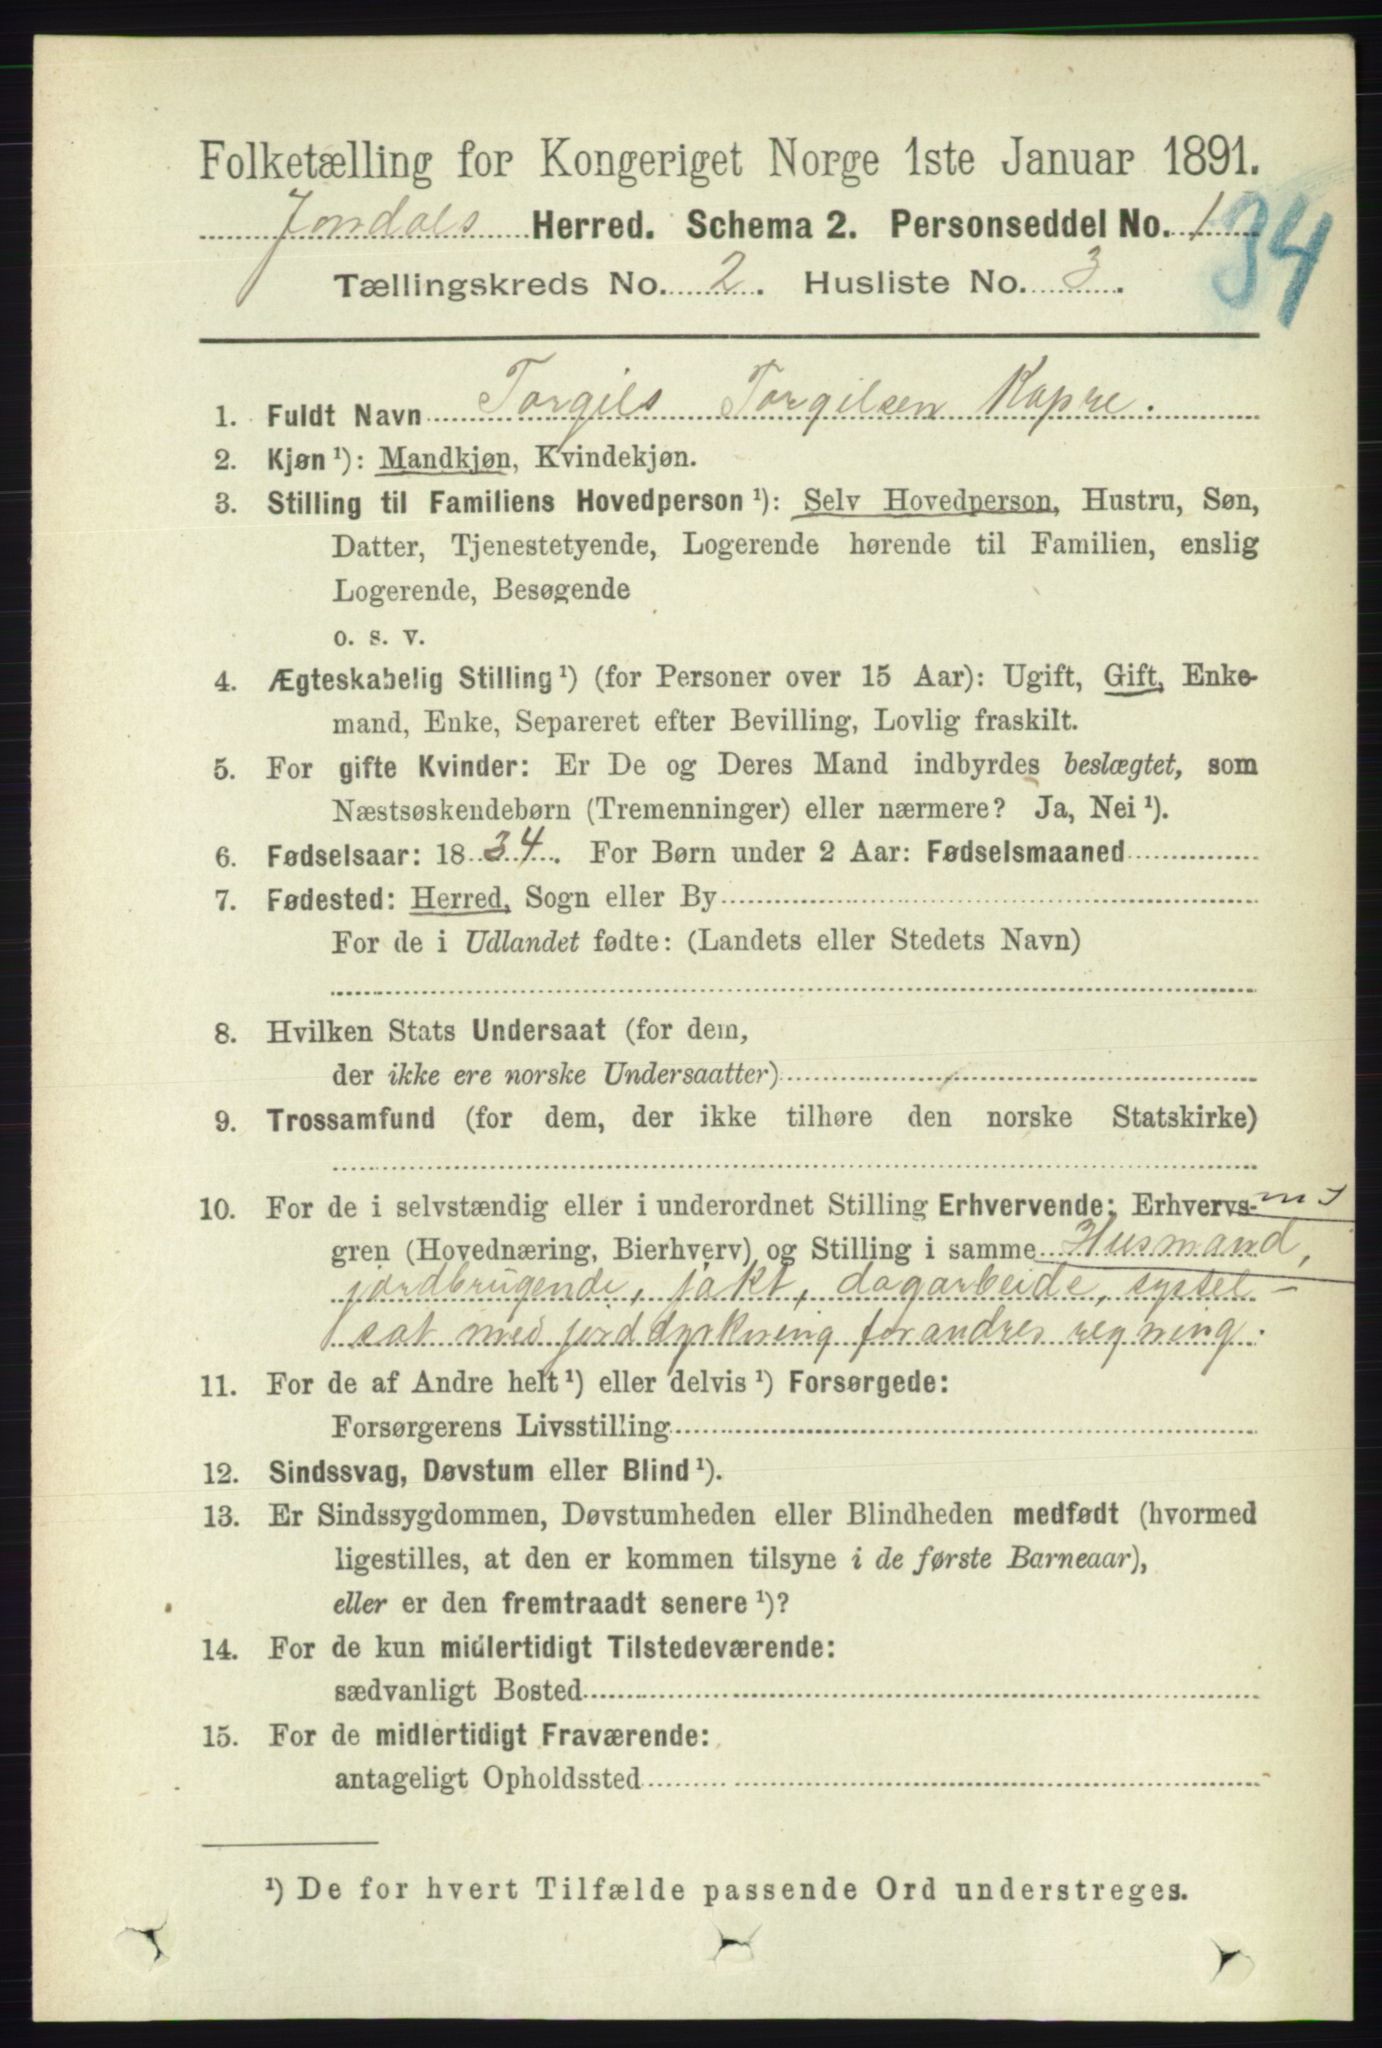 Folketælling for Kongeriget Norge 1ste Januar 1891.
Jondals Herred. Schema 2. Personseddel No. 1
34
Tællingskreds No. 2. Husliste No. 3.
1. Fuldt Navn Torgils Torgilsen Kapre.
2. Kjøn ¹): Mandkjøn, Kvindekjøn.
3. Stilling til Familiens Hovedperson ¹): Selv Hovedperson, Hustru, Søn,
Datter, Tjenestetyende, Logerende hørende til Familien, enslig
Logerende, Besøgende
o. s. v.
4. Ægteskabelig Stilling ¹) (for Personer over 15 Aar): Ugift, Gift, Enke-
mand, Enke, Separeret efter Bevilling, Lovlig fraskilt.
5. For gifte Kvinder: Er De og Deres Mand indbyrdes beslægtet, som
Næstsøskendebørn (Tremenninger) eller nærmere? Ja, Nei ¹).
6. Fødselsaar: 1834. For Børn under 2 Aar: Fødselsmaaned
7. Fødested: Herred, Sogn eller By
For de i Udlandet fødte: (Landets eller Stedets Navn)
8. Hvilken Stats Undersaat (for dem,
der ikke ere norske Undersaatter)
9. Trossamfund (for dem, der ikke tilhøre den norske Statskirke)
10. For de i selvstændig eller i underordnet Stilling Erhvervende: Erhvervs-
m J
gren (Hovednæring, Bierhverv) og Stilling i samme Husmand,
jordbrugende, jakt, dagarbeide, syssel-
sat med jorddyrkning for andres regning.
11. For de af Andre helt ¹) eller delvis ¹) Forsørgede:
Forsørgerens Livsstilling
12. Sindssvag, Døvstum eller Blind ¹).
13. Er Sindssygdommen, Døvstumheden eller Blindheden medfødt (hvormed
ligestilles, at den er kommen tilsyne i de første Barneaar),
eller er den fremtraadt senere ¹)?
14. For de kun midlertidigt Tilstedeværende:
sædvanligt Bosted
15. For de midlertidigt Fraværende:
antageligt Opholdssted
¹) De for hvert Tilfælde passende Ord understreges.